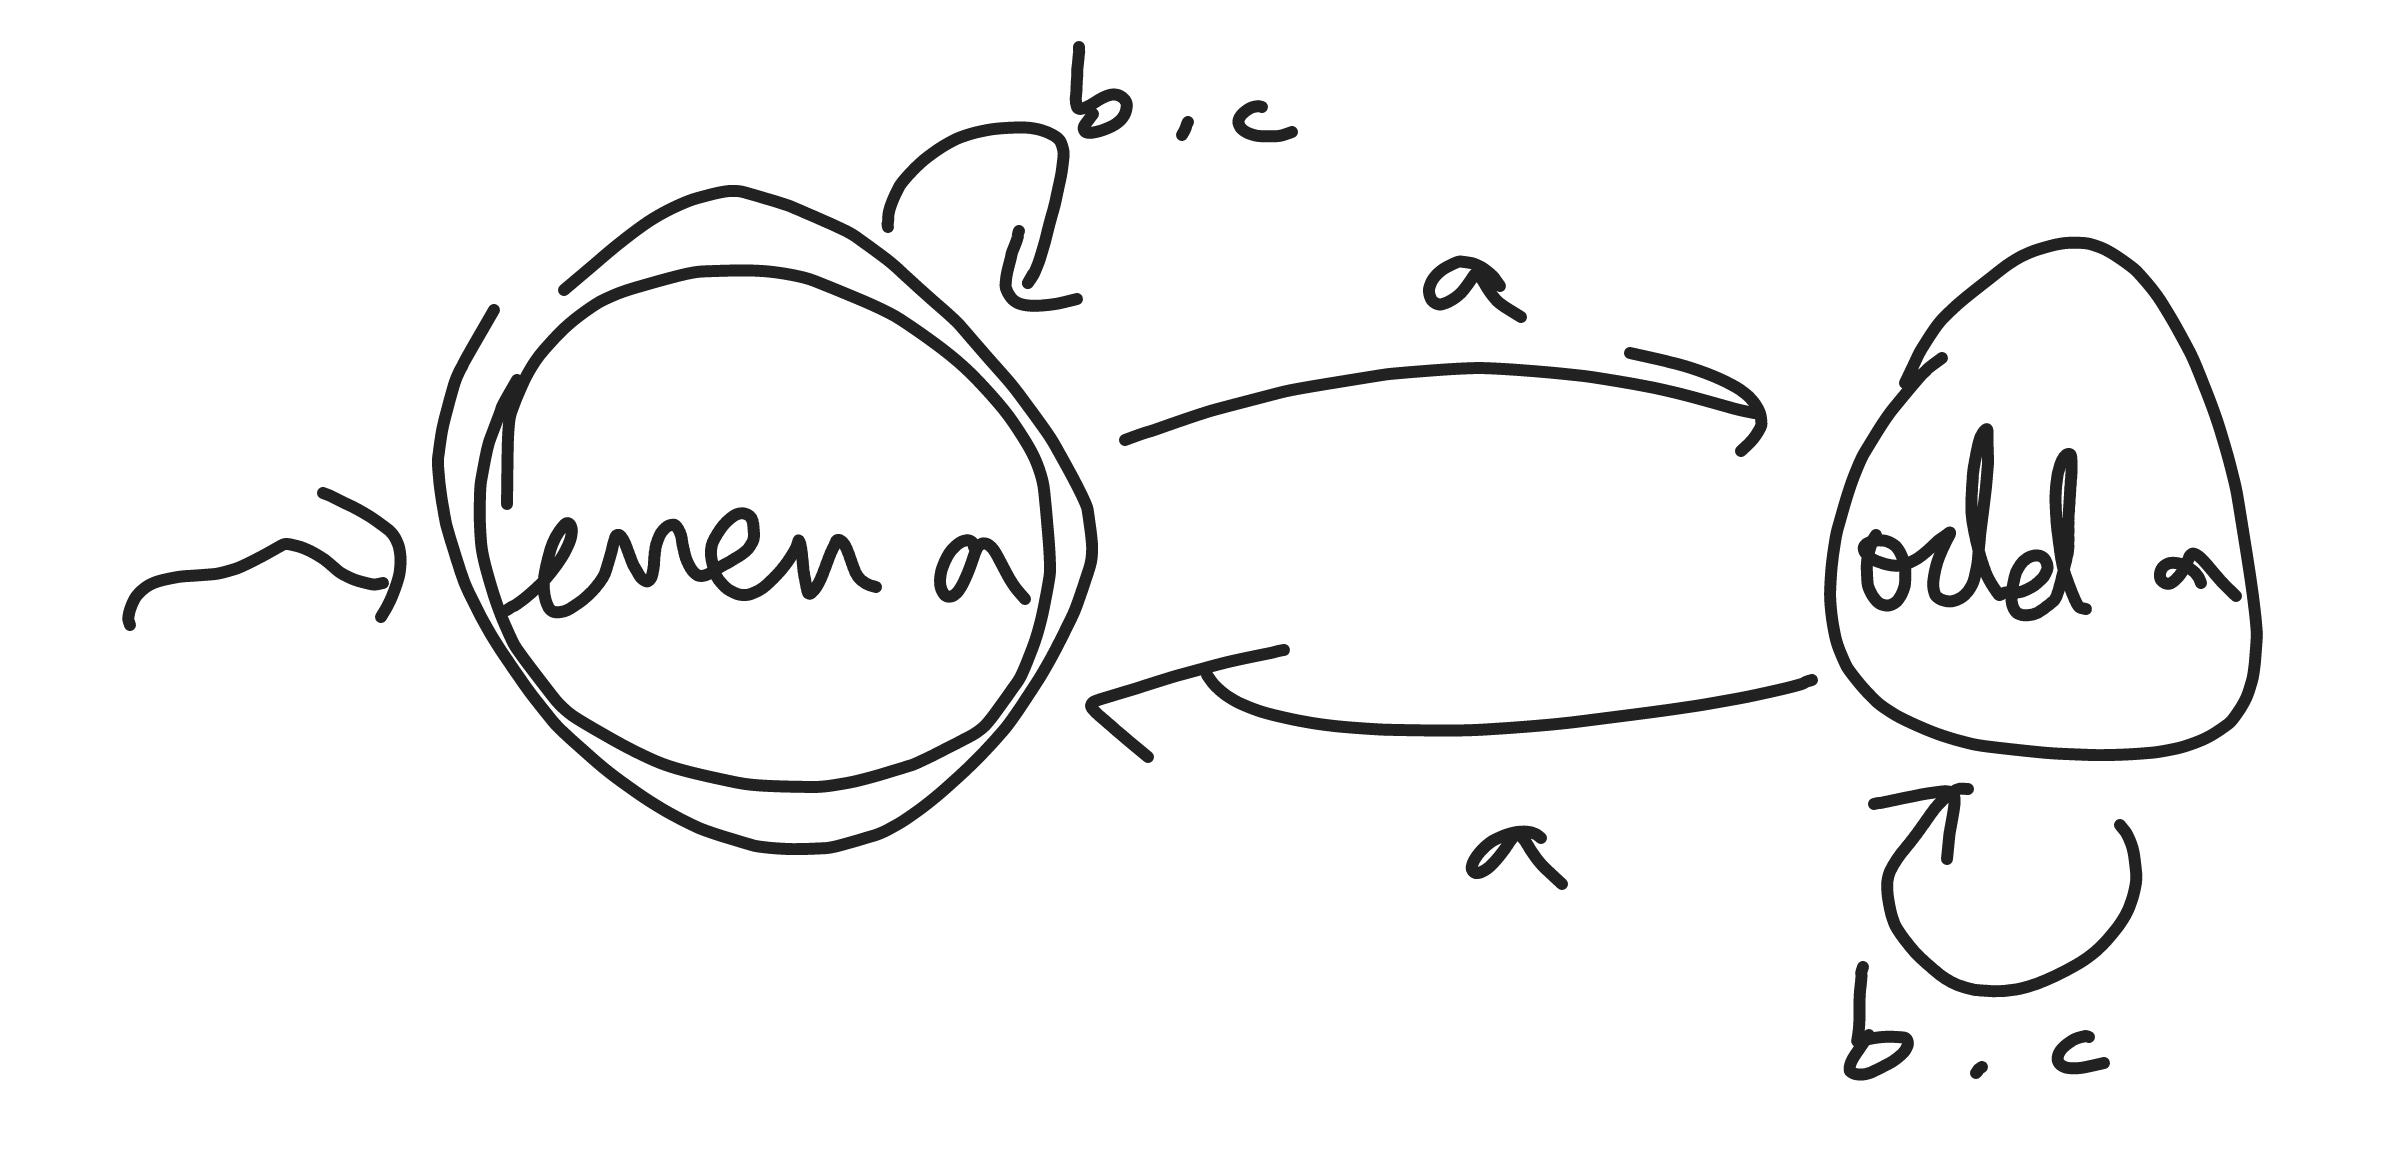 b, c
a
even a
odd a
a
b, c